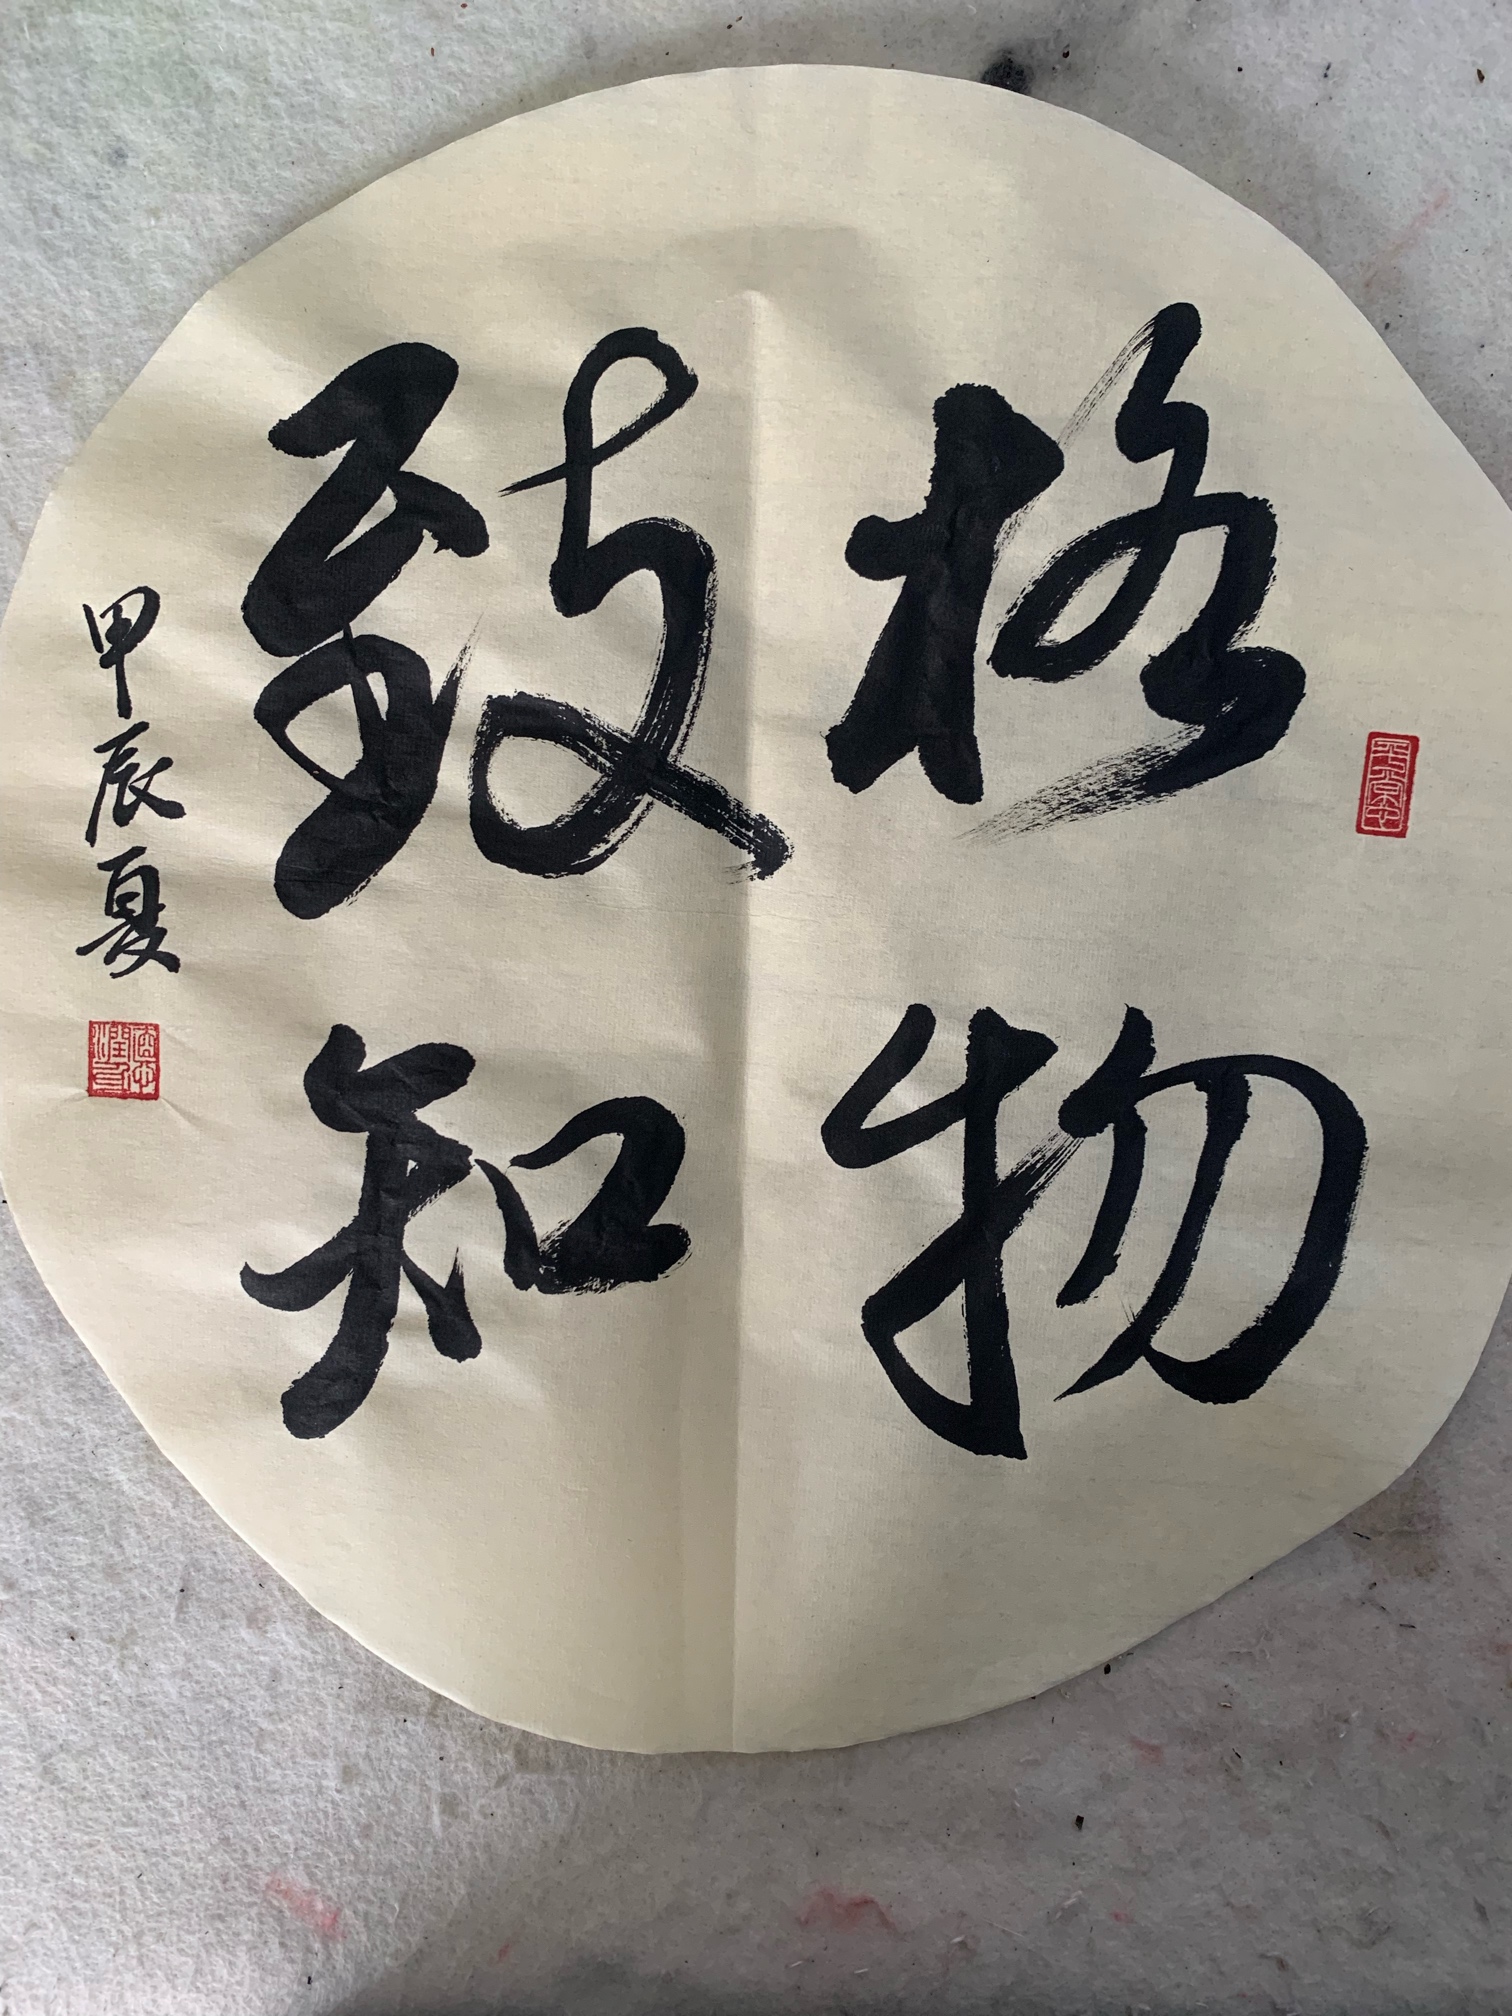 格物
致知
甲辰夏